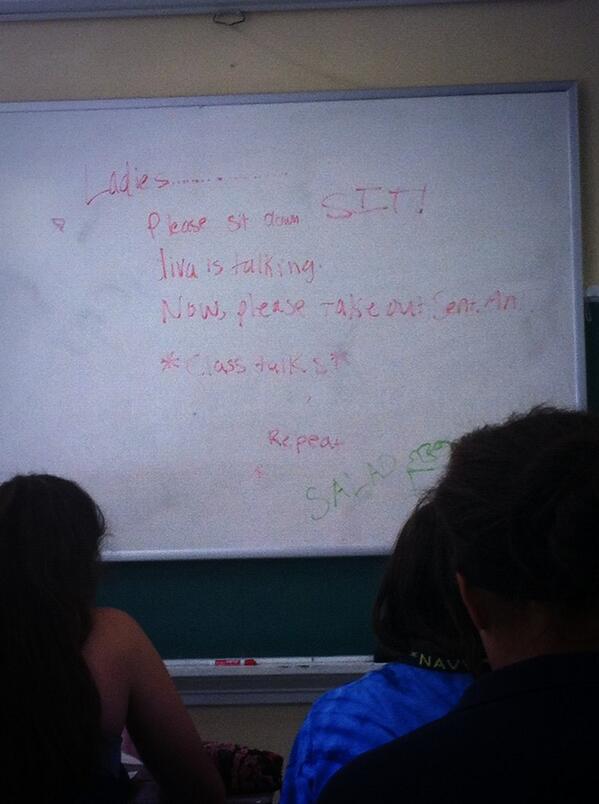 Ladies..............
Please sit down SIT!
Jiva is talking.
Now, please take out Sent. An.
*Class talks*
Repeat
SALAD
NAVY